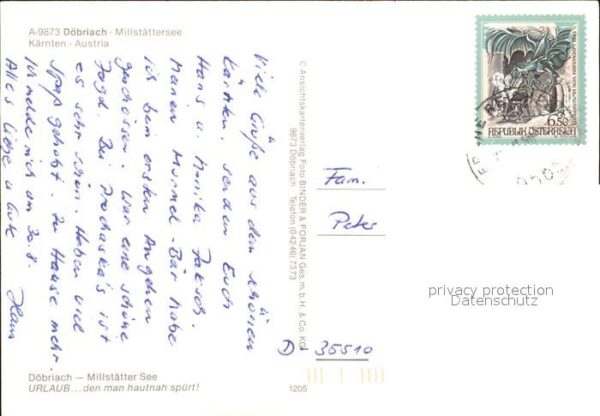 A-9873 Döbriach · Millstättersee
Kärnten · Austria
Viele Grüße aus dem schönen
Kärnten senden Euch
Hans u. Monika
Meinen Murmel-Bär habe
ich beim ersten Angehen
geschossen. War eine schöne
Jagd. Bei Prohaska's ist
es sehr schön. Haben viel
Spaß gehabt. Zu Hause mehr.
Ich melde mich am 30.8.
Alles Liebe u. Gute
Hans
© Ansichtskartenverlag Foto BINDER & FORJAN Ges. m. b. H. & Co. KG
9873 Döbriach · Telefon (04246) 7373
6.50
REPUBLIK ÖSTERREICH
Fam.
Peter
D - 35510
privacy protection
Datenschutz
Döbriach — Millstätter See
URLAUB...den man hautnah spürt!
1205